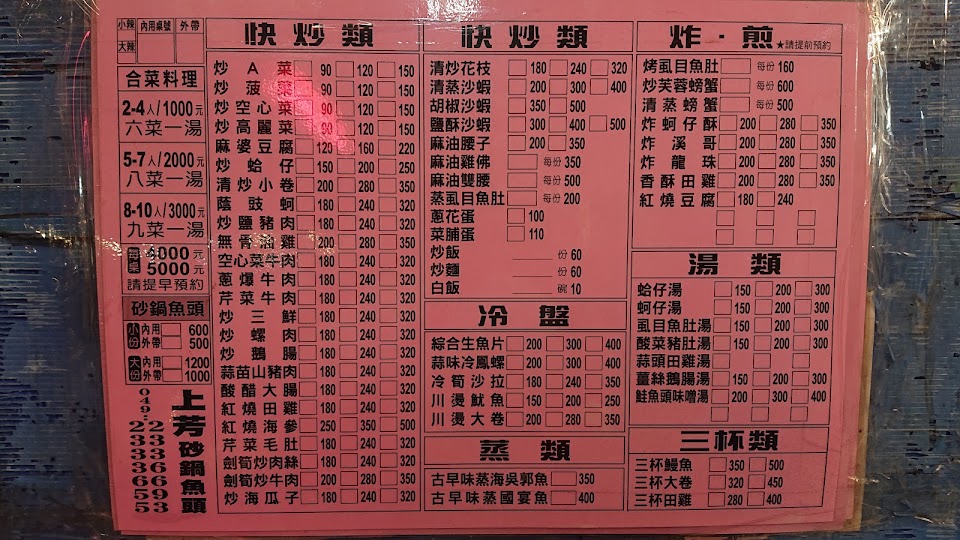 小辣
大辣
內用桌號
外帶
合菜料理
2-4人/1000元
六菜一湯
5-7人/2000元
八菜一湯
8-10人/3000元
九菜一湯
每桌 4000元
5000元
請提早預約
砂鍋魚頭
小份 內用 600
外帶 500
大份 內用 1200
外帶 1000
上芳砂鍋魚頭
049:
2233665
2333693
快炒類
炒A菜 90 120 150
炒菠菜 90 120 150
炒空心菜 90 120 150
炒高麗菜 90 120 150
麻婆豆腐 120 160 220
炒蛤仔 150 200 250
清炒小卷 200 280 350
蔭豉蚵 180 240 320
炒鹽豬肉 180 240 320
無骨油雞 200 280 350
空心菜牛肉 180 240 320
蔥爆牛肉 180 240 320
芹菜牛肉 180 240 320
炒三鮮 180 240 320
炒螺肉 180 240 320
炒鵝腸 180 240 320
蒜苗山豬肉 180 240 320
酸醋大腸 180 240 320
紅燒田雞 180 240 320
紅燒海參 250 350 500
芹菜毛肚 180 240 320
劍筍炒肉絲 180 240 320
劍筍炒牛肉 200 280 350
炒海瓜子 180 240 320
快炒類
清炒花枝 180 240 320
清蒸沙蝦 200 300 400
胡椒沙蝦 350 500
鹽酥沙蝦 300 400 500
麻油腰子 200 350
麻油雞佛 每份 350
麻油雙腰 每份 500
蒸虱目魚肚 每份 200
蔥花蛋 100
菜脯蛋 110
炒飯 份 60
炒麵 份 60
白飯 碗 10
冷盤
綜合生魚片 200 300 400
蒜味冷鳳螺 200 300 400
冷筍沙拉 180 240 350
川燙魷魚 150 200 250
川燙大卷 200 280 350
蒸類
古早味蒸海吳郭魚 350
古早味蒸國宴魚 400
炸．煎 ★請提前預約
烤虱目魚肚 每份 160
炒芙蓉螃蟹 每份 600
清蒸螃蟹 每份 500
炸蚵仔酥 200 280 350
炸溪哥 200 280 350
炸龍珠 200 280 350
香酥田雞 200 280 350
紅燒豆腐 180 240
湯類
蛤仔湯 150 200 300
蚵仔湯 150 200 300
虱目魚肚湯 150 200 300
酸菜豬肚湯 150 200 300
蒜頭田雞湯
薑絲鵝腸湯 150 200 300
鮭魚頭味噌湯 200 300 400
三杯類
三杯鰻魚 350 500
三杯大卷 320 450
三杯田雞 280 400